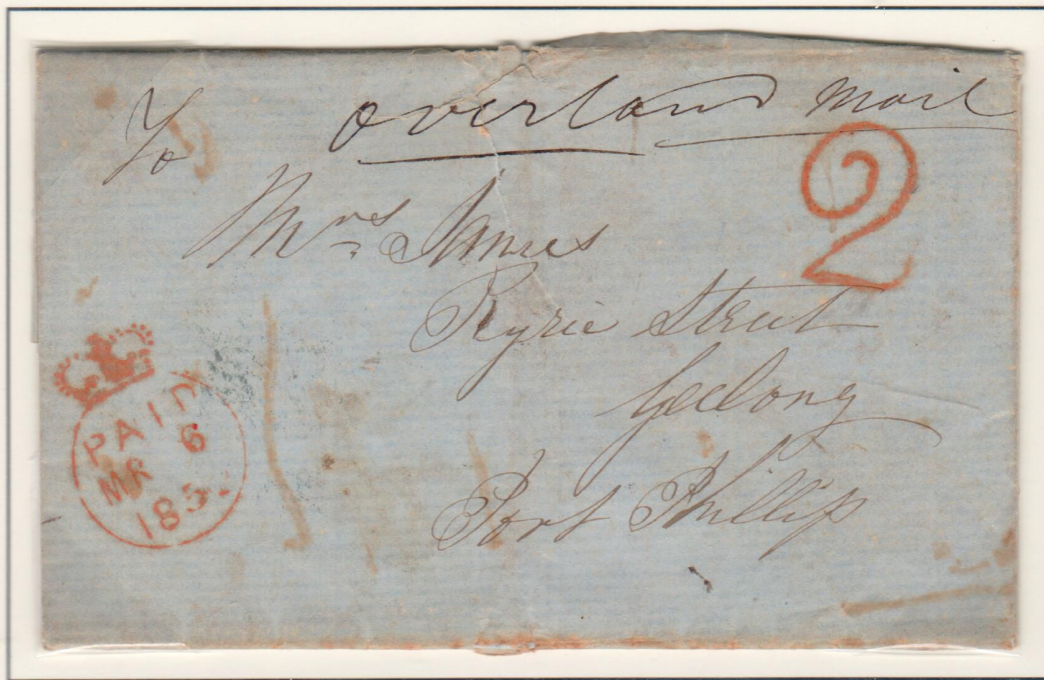 Overland Mail
2
Mrs James
Ryrie Street
Geelong
Port Phillip
PAID
MR 6
185